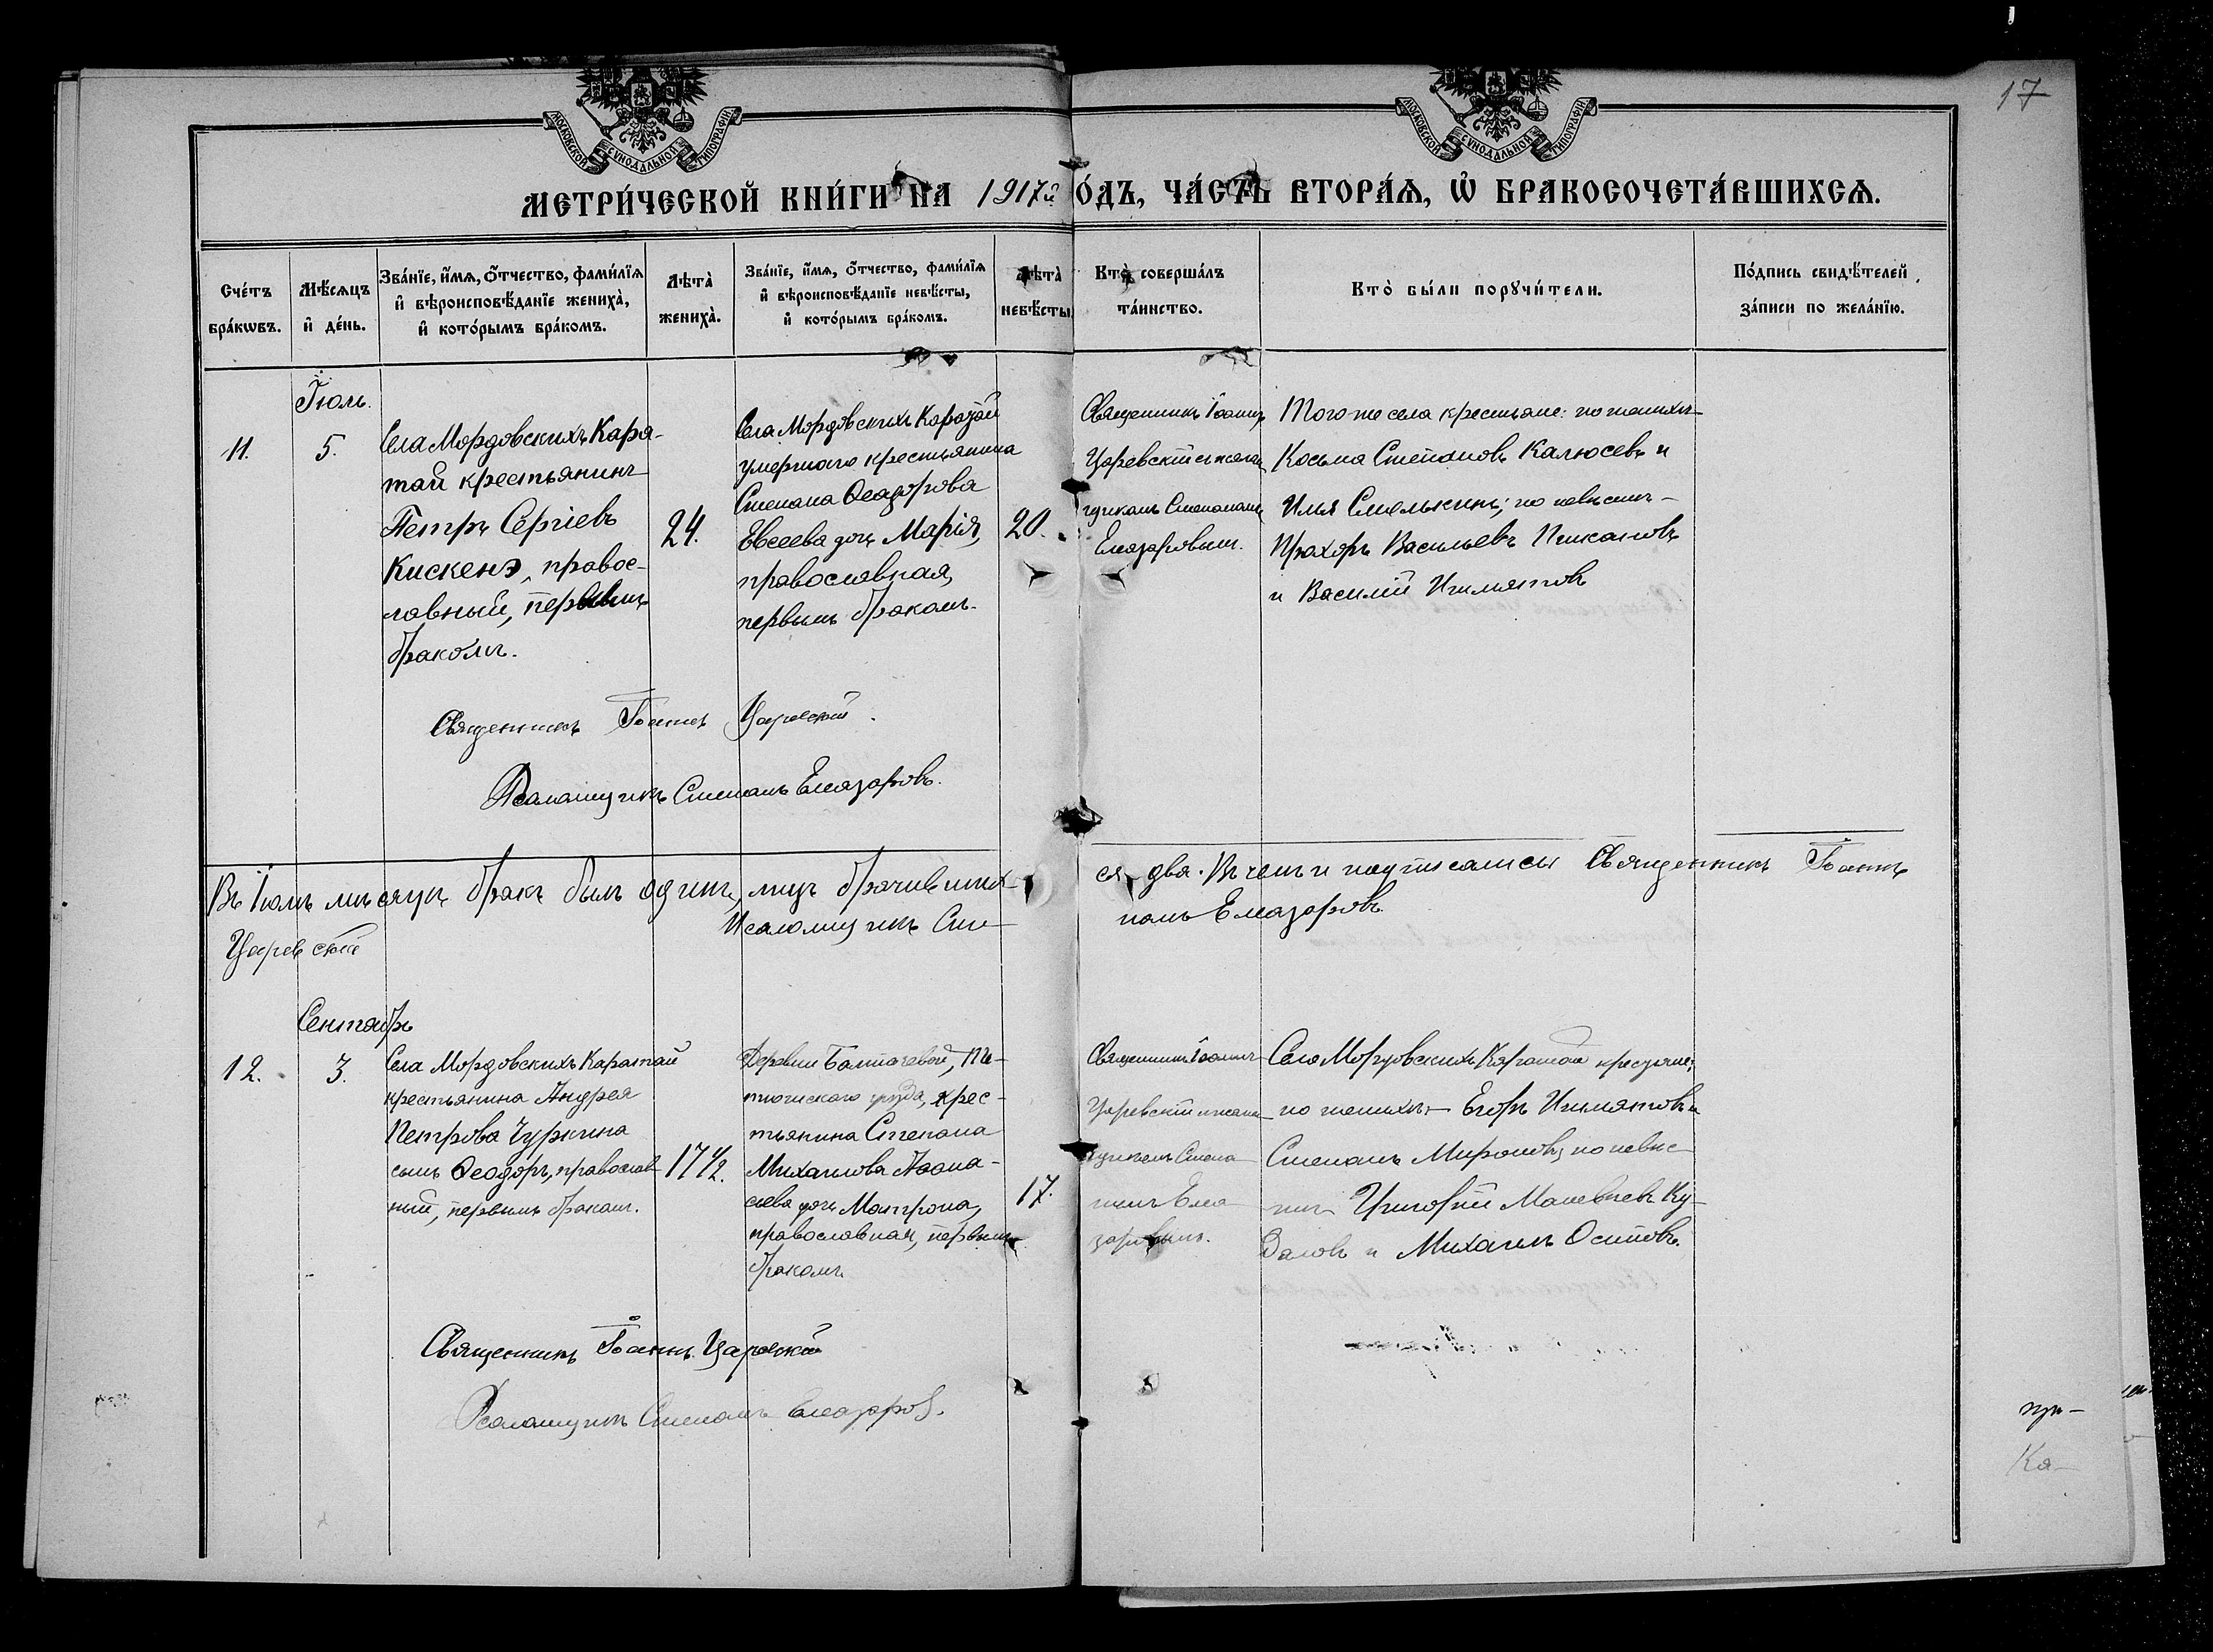 17
МОСКОВСКОЙ СУНОДАЛЬНОЙ ТИПОГРАФІИ
МОСКОВСКОЙ СУНОДАЛЬНОЙ ТИПОГРАФІИ
МЕТРИ́ЧЕСКОЙ КНИ́ГИ НА 1917 г
О́ДЪ, ЧА́СТЬ ВТОРА́Ѧ, Ѡ БРАКОСОЧЕТА́ВШИХСѦ.
Сче́тъ
бра́кѡвъ.
Мѣ́сѧцъ
и де́нь.
Зва́нїе, и́мѧ, о́тчество, фами́лїѧ
и вѣроисповѣ́данїе жениха̀,
и кото́рымъ бра́комъ.
Лѣта̀
жениха̀.
Зва́нїе, и́мѧ, о́тчество, фами́лїѧ
и вѣроисповѣ́данїе невѣ́сты,
и кото́рымъ бра́комъ.
Лѣта̀
невѣ́сты.
Кто̀ соверша́лъ
та́инство.
Кто̀ бы́ли порꙋчи́тели.
По́дпись свидѣ́телей
за́писи по жела́нїю.
Іюль.
11.
5.
Села Мордовскихъ Кара-
тай крестьянинъ
Петръ Сергіевъ
Кискенэ, правос-
лавный, первымъ
бракомъ.
24.
Села Мордовскихъ Каратай
умершаго крестьянина
Степана Ѳеодорова
Евсеева дочь Марія,
православная,
первымъ бракомъ.
20.
Священникъ Іоаннъ
Царевскій съ псалом
щикомъ Степаномъ
Елеазаровымъ.
Того же села крестьяне: по женихѣ
Косьма Степановъ Калюсевъ и
Илья Смелькинъ; по невѣстѣ-
Прохоръ Васильевъ Пиксановъ
и Василій Игильятовъ
Священникъ Іоаннъ Царевскій.
Псаломщикъ Степанъ Елеазаровъ.
Въ Іюлѣ мѣсяцѣ бракъ былъ одинъ, лицъ брачивших-
ся два. Въ чемъ и подписались Священникъ Іоаннъ
Царевскій
Псаломщикъ Сте-
панъ Елеазаровъ.
Сентябрь
12.
3.
Села Мордовскихъ Каратай
крестьянина Андрея
Петрова Чуркина
сынъ Ѳеодоръ, православ
ный, первымъ бракомъ.
17½.
Деревни Балтачевой, Те-
тюшскаго уѣзда, крес-
тьянина Степана
Михаилова Аѳана-
сьева дочь Матрона,
православная, первымъ
бракомъ.
17.
Священникъ Іоаннъ
Царевскій съ псалом
щикомъ Степа
номъ Елеа
заровымъ.
Села Мордовскихъ Каратай крестьяне;
по женихѣ- Егоръ Игильятовъ и
Степанъ Мироновъ, по невѣс
тѣ- Григорій Матвѣевъ Ку-
заловъ и Михаилъ Осиповъ.
Священникъ Іоаннъ Царевскій
Псаломщикъ Степанъ Елеазаровъ.
Ка-